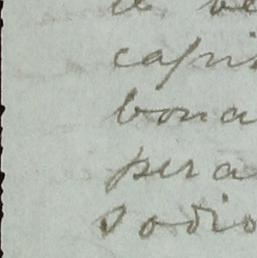 capri
bona
per a
sodio